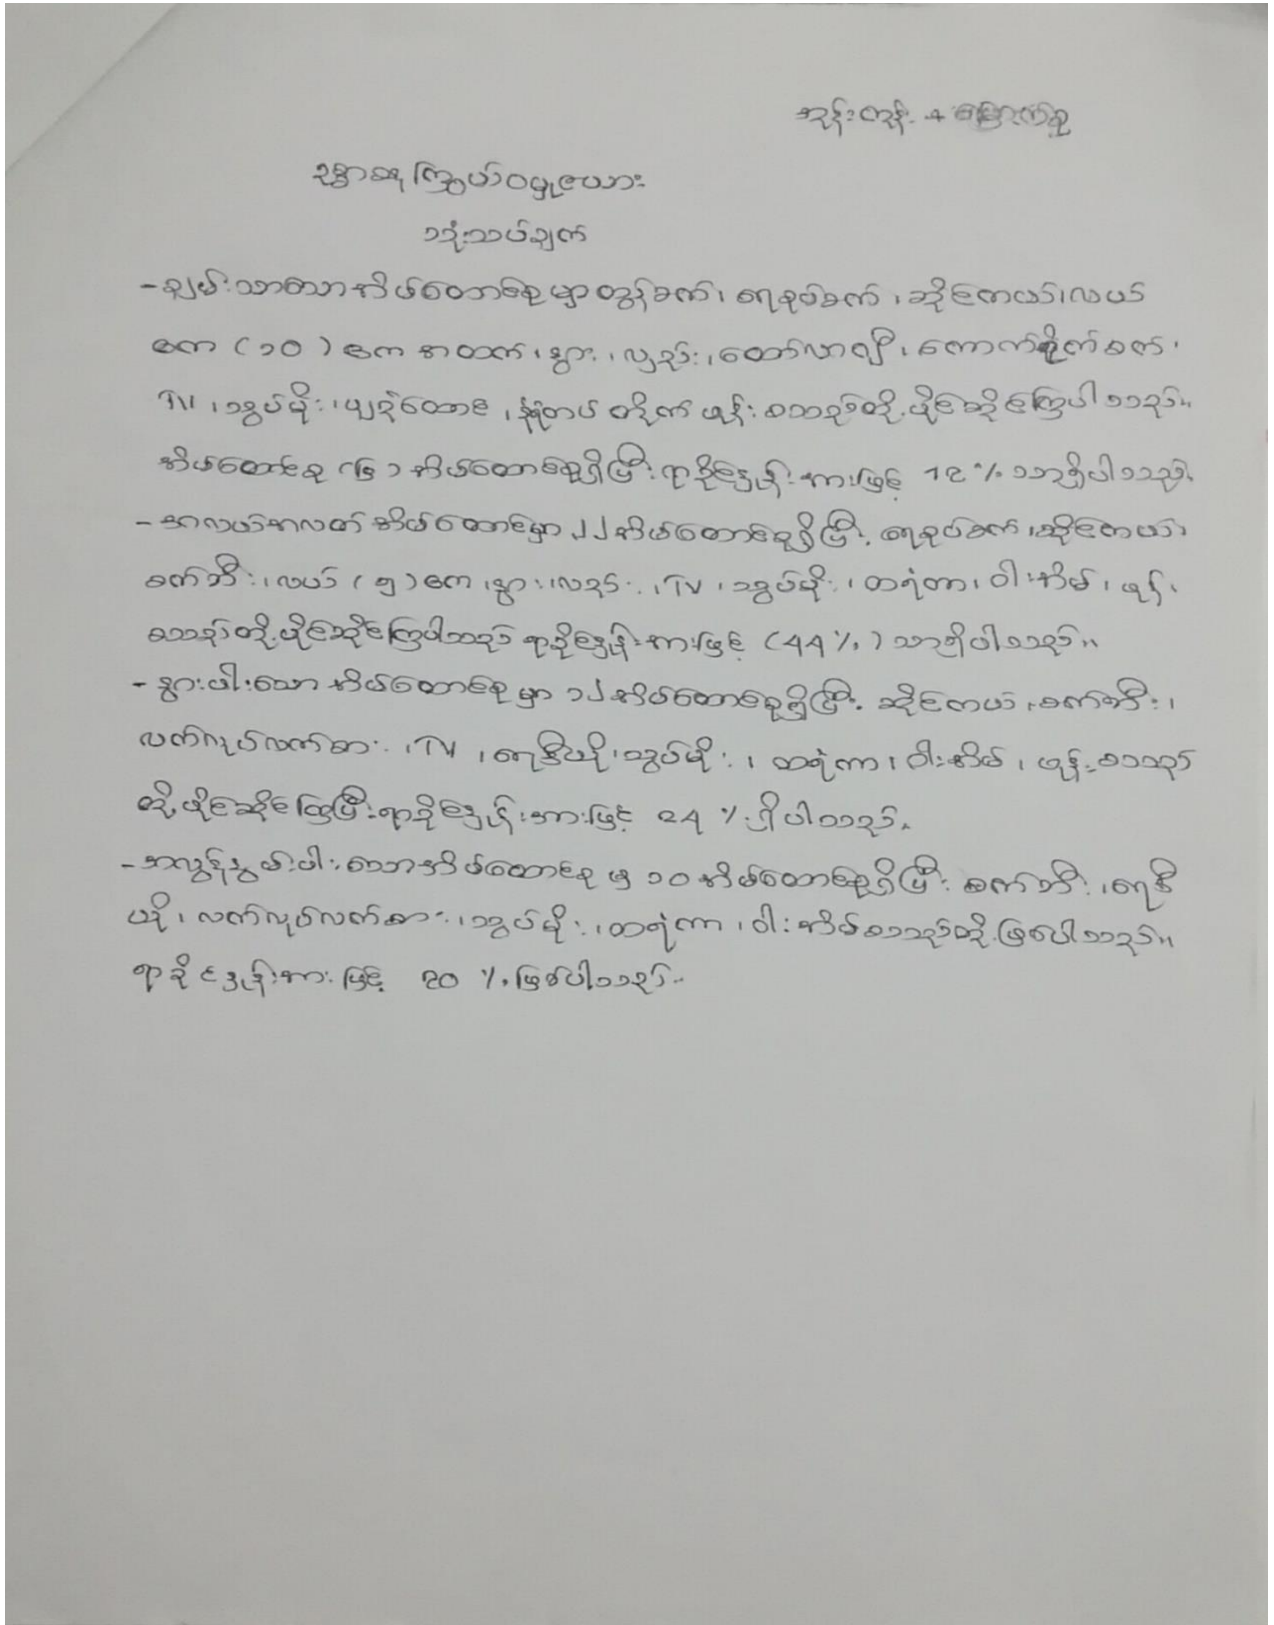 အုန်းတုန်း + မြောက်စု
ဥစ္စာဓနကြွယ်ဝမှုဇယား
သုံးသပ်ချက်
- ချမ်းသာသောအိမ်ထောင်စုမှာ ထွန်စက်၊ ရေစုပ်စက်၊ ဆိုင်ကယ်၊ လယ်
ဧက (၁၀) ဧက အထက်၊ နွား၊ လှည်း၊ ထော်လာဂျီ၊ ကောက်စိုက်စက်၊
TV ၊ သွပ်မိုး၊ ပျဉ်ထောင်၊ နံရံကပ် တိုက် ဖုန်း စသည်တို့ပိုင်ဆိုင်ကြပါသည်။
အိမ်ထောင်စု (၆) အိမ်ထောင်စုရှိပြီး ရာခိုင်နှုန်းအားဖြင့် 12 % သာရှိပါသည်။
- အလယ်အလတ် အိမ်ထောင်မှာ ၂၂ အိမ်ထောင်စုရှိပြီး ရေစုပ်စက်၊ ဆိုင်ကယ်၊
စက်ဘီး၊ လယ် (၅) ဧက၊ နွား၊ လှည်း၊ TV ၊ သွပ်မိုး၊ ထရံကာ၊ ဝါးအိမ်၊ ဖုန်း၊
စသည်တို့ပိုင်ဆိုင်ကြပါသည် ရာခိုင်နှုန်းအားဖြင့် (44 %) သာရှိပါသည်။
- နွမ်းပါးသော အိမ်ထောင်စုမှာ ၁၂ အိမ်ထောင်စုရှိပြီး ဆိုင်ကယ်၊ စက်ဘီး၊
လက်လုပ်လက်စား၊ TV ၊ ရေဒီယို၊ သွပ်မိုး၊ ထရံကာ၊ ဝါးအိမ်၊ ဖုန်း စသည်
တို့ပိုင်ဆိုင်ကြပြီး ရာခိုင်နှုန်းအားဖြင့် 24 % ရှိပါသည်။
- အလွန်နွမ်းပါးသောအိမ်ထောင်စုမှ ၁၀ အိမ်ထောင်စုရှိပြီး စက်ဘီး၊ ရေဒီ
ယို၊ လက်လုပ်လက်စား၊ သွပ်မိုး၊ ထရံကာ၊ ဝါးအိမ်စသည်တို့ဖြစ်ပါသည်။
ရာခိုင်နှုန်းအားဖြင့် 20 % ဖြစ်ပါသည်။